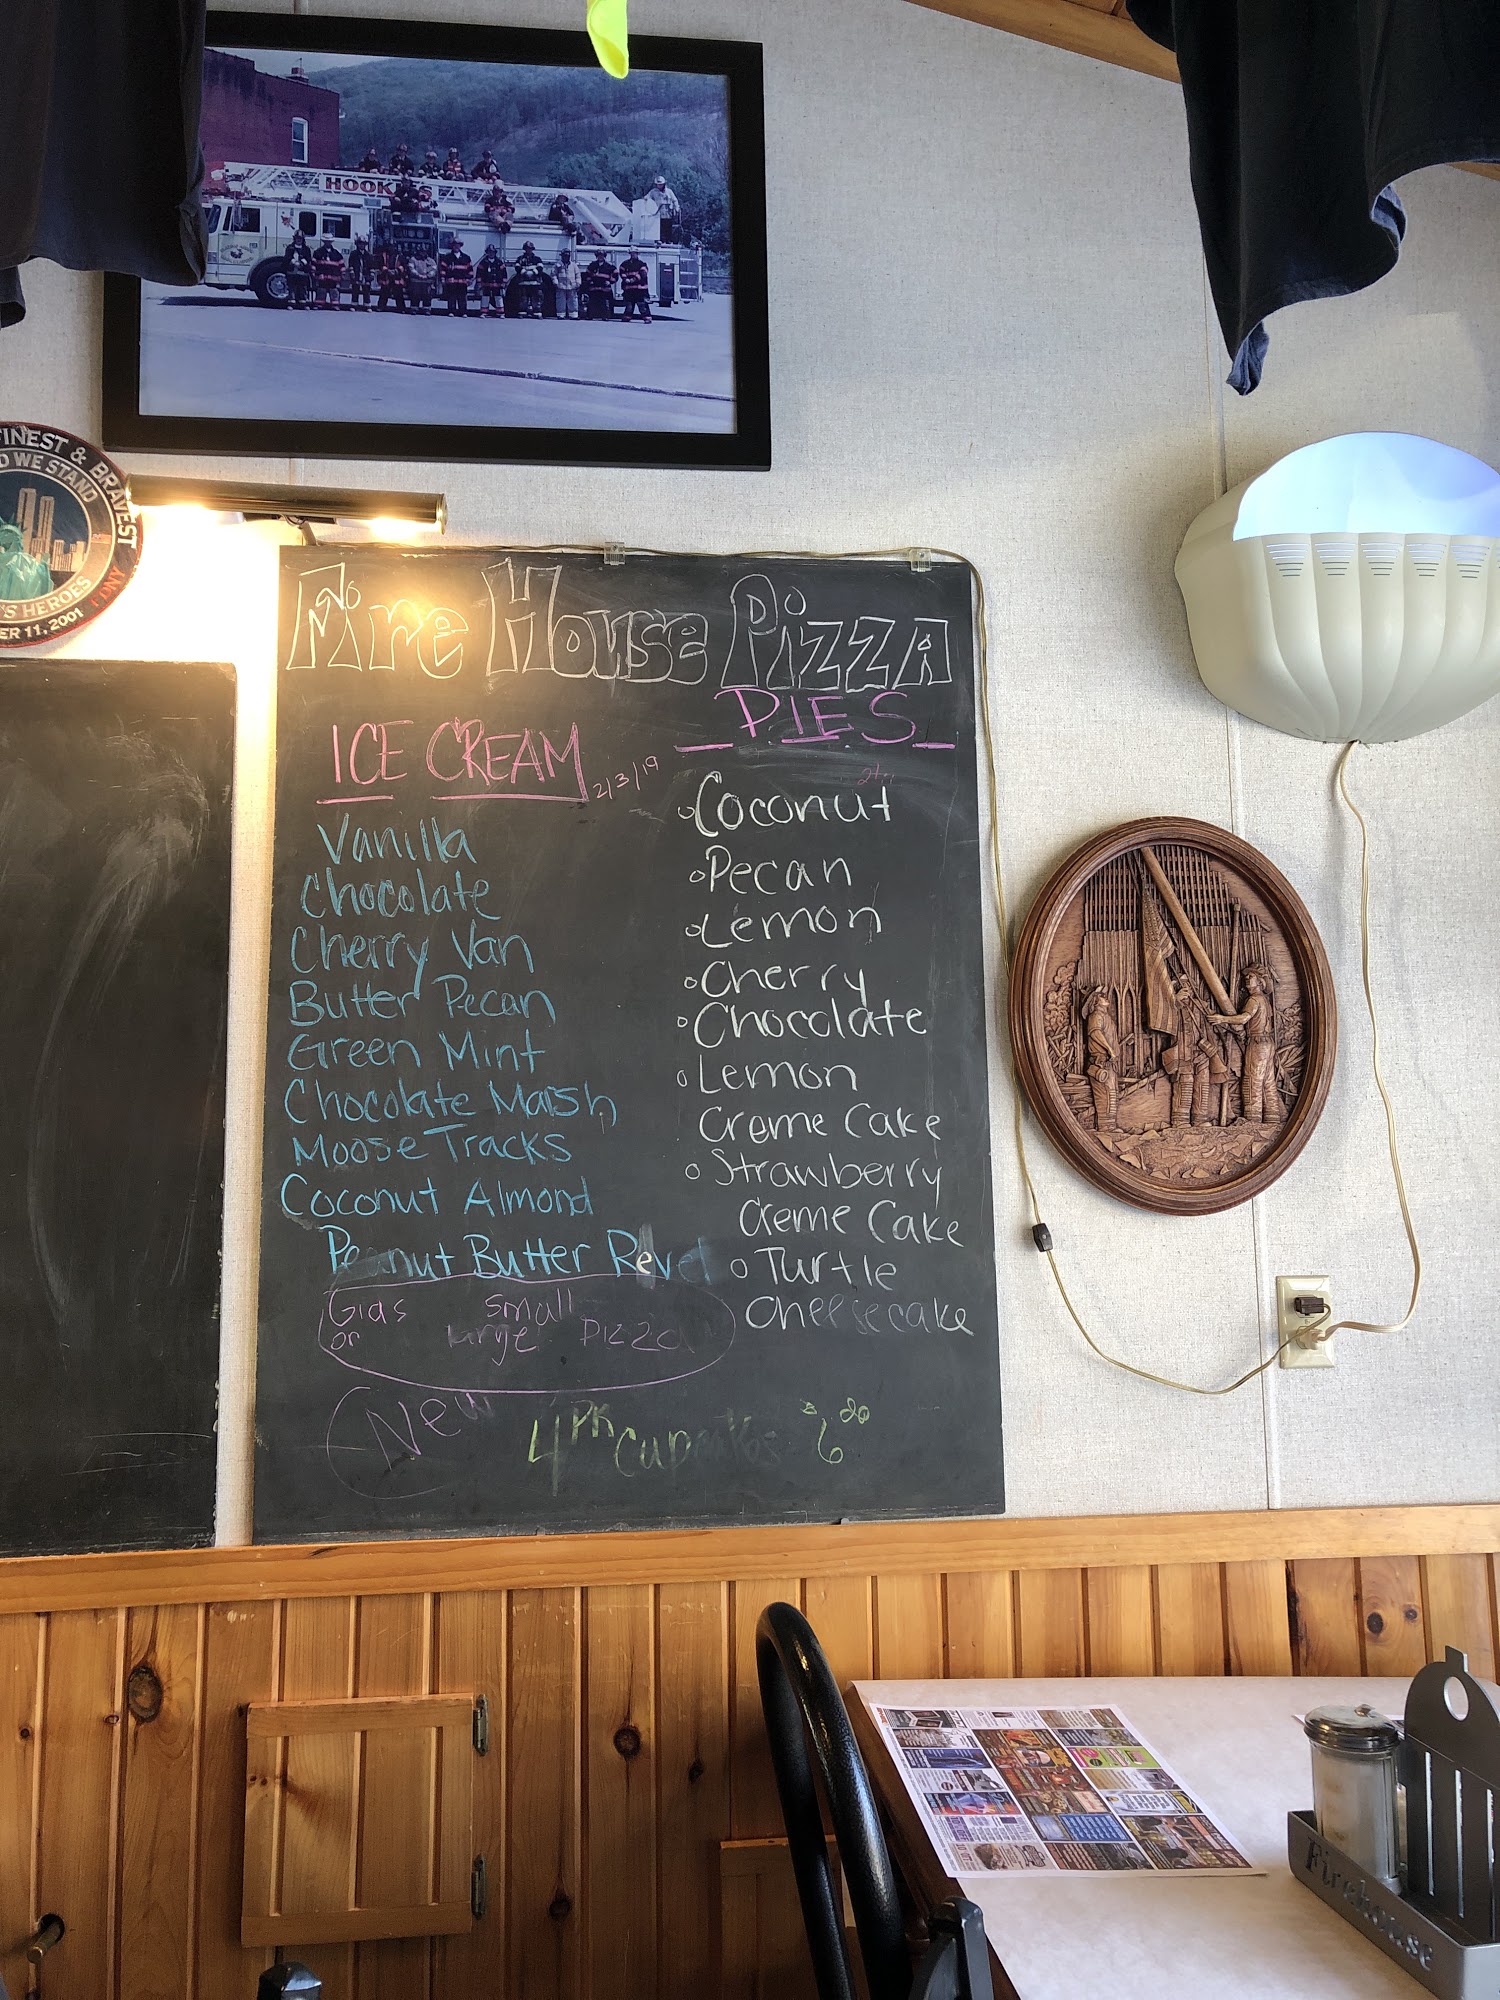 HOOK
FINEST & BRAVEST
D WE STAND
'S HEROES
FDNY
ER 11, 2001
Fire House Pizza
ICE CREAM
2/3/19
Vanilla
Chocolate
Cherry Van
Butter Pecan
Green Mint
Chocolate Marsh,
Moose Tracks
Coconut Almond
Peanut Butter Revel
PIES
Coconut
Pecan
Lemon
Cherry
Chocolate
Lemon
Creme Cake
Strawberry
Creme Cake
Turtle
Cheesecake
Glds small
or large Pizza
New
4 PK Cupcakes $6
Firehouse